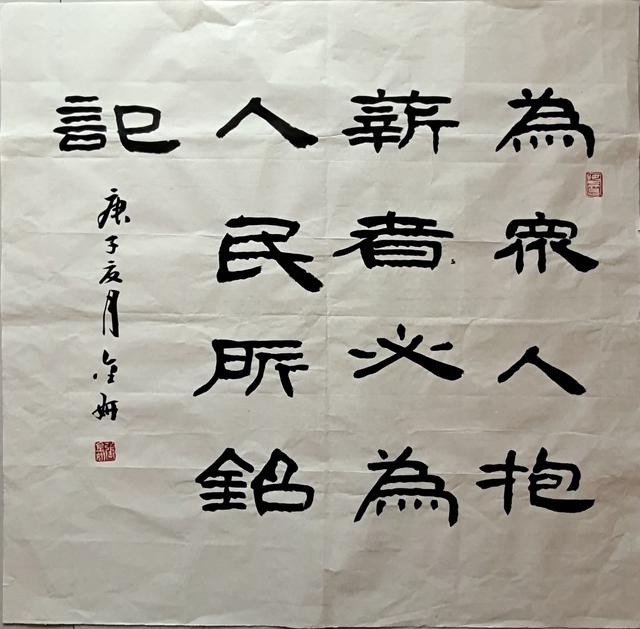 為眾人抱
薪者必為
人民所銘
記
庚子夏月金妍